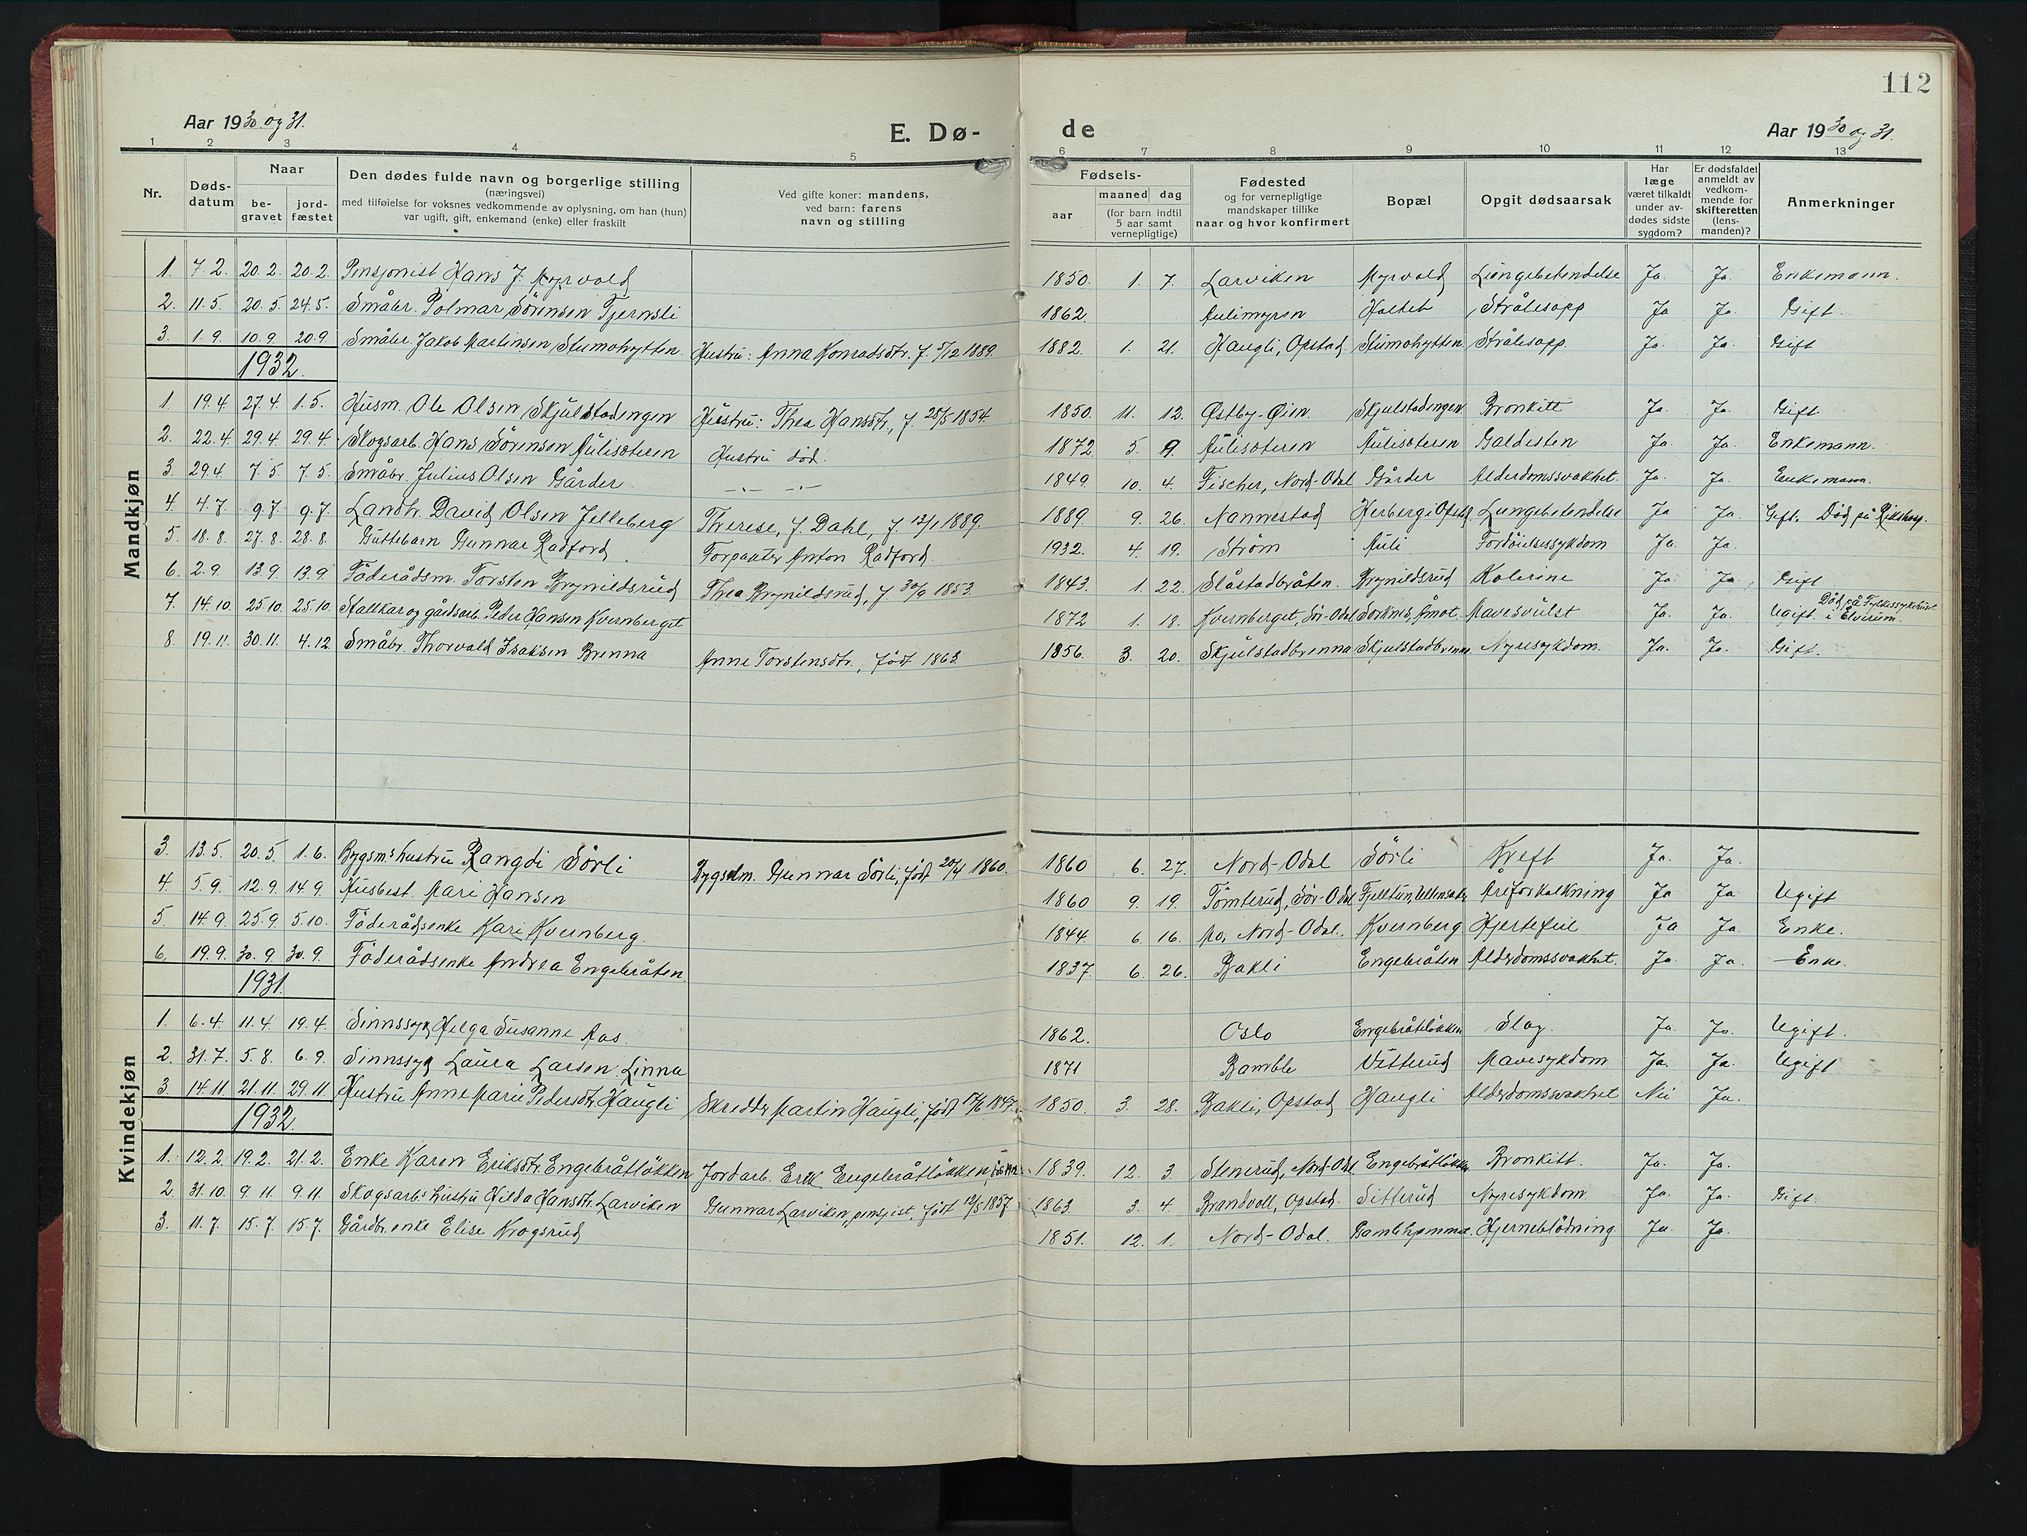 112
Aar 1930 og 31.
E. Dø-
de
Aar 1930 og 31.
1 2 3 4 5 6 7 8 9 10 11 12 13
Nr.
Døds-
datum
Naar
be-
gravet
jord-
fæstet
Den dødes fulde navn og borgerlige stilling
(næringsvei)
med tilføielse for voksnes vedkommende av oplysning, om han (hun)
var ugift, gift, enkemand (enke) eller fraskilt
Ved gifte koner: mandens,
ved barn: farens
navn og stilling
Fødsels-
aar
maaned dag
(for barn indtil
5 aar samt
vernepligtige)
Fødested
og for vernepligtige
mandskaper tillike
naar og hvor konfirmert
Bopæl
Opgit dødsaarsak
Har
læge
været tilkaldt
under av-
dødes sidste
sygdom?
Er dødsfaldet
anmeldt av
vedkom-
mende for
skifteretten
(lens-
manden)?
Anmerkninger
Mandkjøn
1. 7.2. 20.2. 20.2. Pensjonist Hans J. Myrvold 1850. 1. 7. Larviken Myrvold Lungebetendelse Ja. Ja. Enkemann.
2. 11.5. 20.5 24.5. Småbr. Polmar Sörensen Tjernsli 1862. Aulimyren Haltet Strålesopp Ja Ja. Gift.
3. 1.9. 10.9. 20.9. Småbr. Jakob Martinsen Stumohytten Hustru: Anna Konradsdtr. f. 5/12 1889. 1882. 1. 21. Haugli, Opstad Stumohytten Strålesopp. Ja. Ja. Gift
1932.
1. 19.4. 27.4. 1.5. Husm. Ole Olsen Skjulstadengen Hustru: Thea Hansdtr., f. 25/5 1854. 1850. 11. 12. Østby-Øien. Skjulstadengen Bronkitt Ja. Ja. Gift.
2. 22.4. 29.4. 29.4. Skogsarb. Hans Sörensen Aulisæteren Hustru död. 1872. 5. 9. Aulisæteren Aulisæteren Galdesten Ja. Ja. Enkemann.
3. 29.4. 7.5. 7.5. Småbr. Julius Olsen Gårder —"— —"— 1849. 10. 4. Fischer, Nord-Odal Gårder Alderdomssvakhet. Ja. Ja. Enkemann.
4. 4.7. 9.7 9.7 Landh. David Olsen Jelleberg Therese, f. Dahl, f. 12/1 1889. 1889. 9. 26. Nannestad Herberg i Opstad Lungebetendelse Ja. Ja. Gift. Död på Rikshosp.
5. 18.8. 27.8. 28.8. Guttebarn Gunnar Radford Forpakter Anton Radford. 1932. 4. 19. Ström Auli Fordöielsessykdom Ja. Ja.
6. 2.9. 13.9. 13.9. Föderådsm. Torsten Brynildsrud Thea Brynildsrud, f. 30/9 1853. 1843. 1. 22. Slåstadbråten. Brynildsrud Kolerine Ja. Ja. Gift
7. 14.10. 25.10. 25.10. Stallkar og gårdsarb. Peder Hansen Kvernberget 1872 1. 18. Kvernberget, Sör-Odal Sorknes, Åmot. Mavesvulst Ja. Ja. Ugift. Död på Fylkessykehuset i Elverum.
8. 19.11. 30.11. 4.12. Småbr. Thorvald Isaksen Brenna Anne Torstensdtr., født 1863. 1856. 3. 20. Skjulstadbrenna Skjulstadbrenna Nyresykdom. Ja. Ja. Gift.
Kvindekjøn
3. 13.5. 20.5. 1.6. Bygsm's hustru Rangdi Sörli Bygselm. Gunnar Sörli, født 20/4 1860. 1860 6. 27. Nord-Odal Sörli Kreft Ja. Ja.
4. 5.9. 12.9. 14.9. Husbest. Mari Hansen 1860 9. 19. Tömterud, Sör-Odal Fjelltun, Ullensaker Åreforkalkning Ja Ja. Ugift
5. 14.9. 25.9. 5.10. Föderådsenke Kari Kvernberg. 1844. 6. 16. Mo, Nord-Odal. Kvernberg Hjertefeil Ja Ja. Enke.
6. 19.9. 30.9. 30.9. Föderådsenke Andrea Engebråten. 1837. 6. 26. Bakli Engebråten Alderdomssvakhet. Ja. Ja. Enke.
1931.
1. 6.4. 11.4. 19.4. Sinnssyk Helga Susanne Aas. 1862. Oslo Engebråtlökken Slag. Ja. Ja. Ugift.
2. 31.7. 5.8. 6.9. Sinnssyk Laura Larsen Linna 1871 Bamble Vitterud Mavesykdom Ja. Ja. Ugift
3. 14.11. 21.11. 29.11. Hustru Anne Marie Pedersdtr. Haugli Skredder Martin Haugli, født 1847. 1850. 3. 28. Bakli, Opstad Haugli Alderdomssvakhet Nei Ja.
1932.
1. 12.2. 19.2. 21.2. Enke Karen Eriksdtr. Engebråtlökken Jordarb. Erik Engebråtlökken, 1839. 12. 3. Stenerud, Nord-Odal. Engebråtlökken Bronkitt. Ja. Ja.
2. 31.10. 9.11. 9.11. Skogsarb's hustru Hilda Hansdtr. Larviken Gunnar Larviken, pensjist, født 12/5 1857. 1863. 3. 4. Brandvoll, Opstad. Sitterud Nyresykdom Ja. Ja. Gift.
3. 11.7. 15.7. 15.7. Gårdbr. enke Elise Krogsrud 1851. 12. 1. Nord-Odal. Gamlehjemmet. Hjerneblödning Ja. Ja.